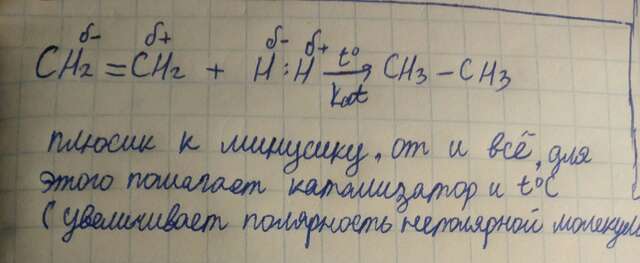 δ- δ+ δ- δ+
CH2 = CH2 + H : H t° kat → CH3 – CH3
плюсик к минусику, от и всё, для
этого помагает катализатор и t°C
(увеличивает полярность неполярной молекулы